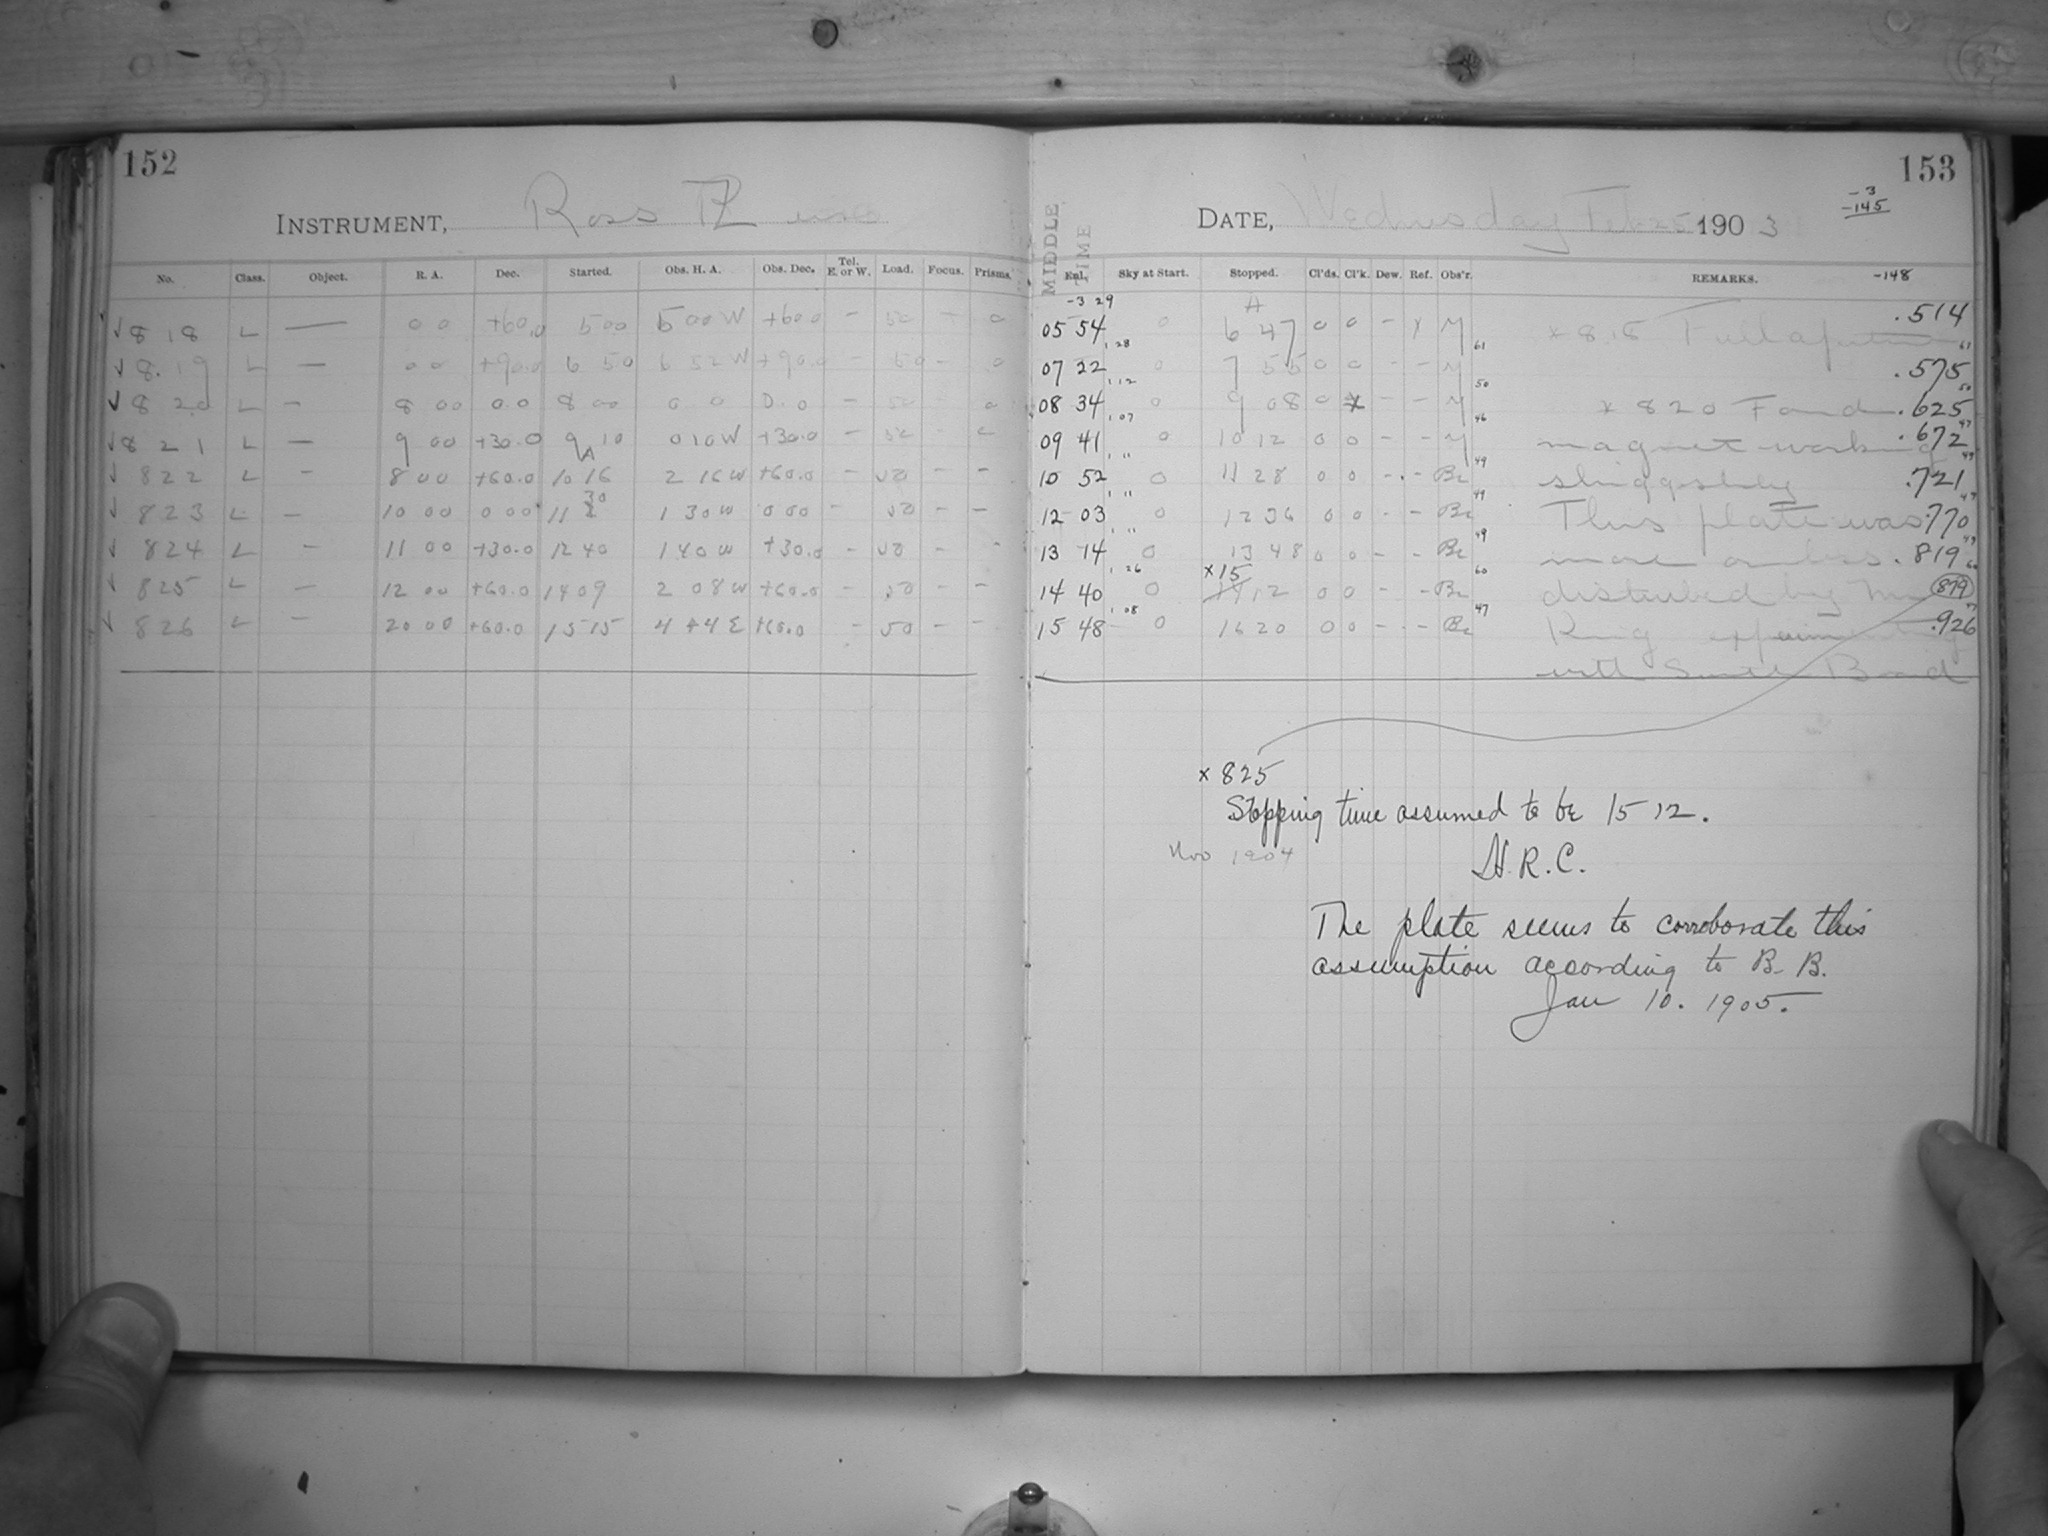 152
INSTRUMENT, Ross
No. Class. Object. R. A. Dec. Started. Obs. H. A. Obs. Dec. Tel. E. or W. Load. Focus. Prisms.
818 L — 0 0 +60.0 5 00 5 00 W +60.0 – 50 – 0
8.19 L — 0 0 +90.0 6 50 6 52 W +90.0 – 50 – 0
820 L – 8 00 0.0 8 00 0 0 0.0 – 50 – 0
821 L – 9 00 +30.0 9 10 0 10 W +30.0 – 50 –
822 L – 8 00 +60.0 10 16 2 16 W +60.0 – 50 – –
823 L – 10 00 0 00 11 30 1 30 W 0 00 – 50 – –
824 L – 11 00 +30.0 12 40 1 40 W +30.0 – 50 – –
825 L – 12 00 +60.0 14 09 2 08 W +60.0 – 50 – –
826 L – 20 00 +60.0 15 15 4 44 E +60.0 – 50 – –
153
-3
-145
DATE, Wednesday Feb 25 1903
MIDDLE TIME
Exl. Sky at Start. Stopped. Cl'ds. Cl'k. Dew. Ref. Obs'r. REMARKS. -148
-3 29
05 54 0 6 47 0 0 – x M .514
1 28 61 61
07 22 0 7 55 0 0 – – M .575
1 12 50 50
08 34 0 9 08 0 x – – M x 820 Found .625
1 07 46 47
09 41 0 10 12 0 0 – – M magnet working .672
1 " 49 49
10 52 0 11 28 0 0 – – Bc sluggishly .721
1 " 49 49
12 03 0 12 36 0 0 – – Bc This plate was .770
1 " 49 49
13 14 0 13 48 0 0 – – Bc more or less .819
1 26 x 15 60 60
14 40 0 14 12 0 0 – – Bc disturbed by Mr 879
1 08 47 47
15 48 0 16 20 0 0 – – Bc King experimenting .926
with Bond
x 825
Stopping time assumed to be 15 12.
Nov 1904
H. R. C.
The plate seems to corroborate this
assumption according to B. B.
Jan 10. 1905.